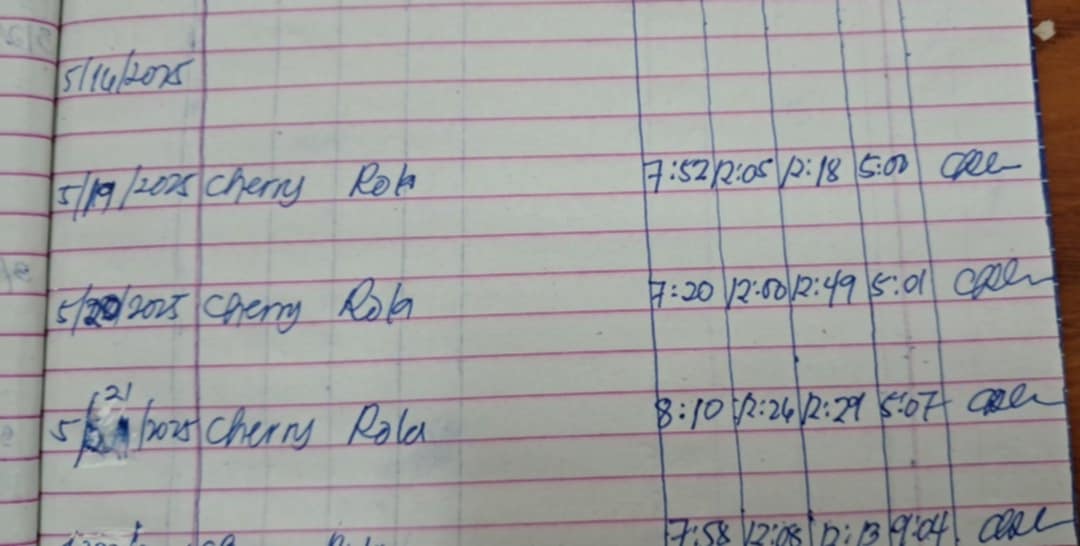 5/16/2025
5/19/2025 Cherry Rola 7:52 12:05 12:18 5:00
5/20/2025 Cherry Rola 7:20 12:00 12:49 5:01
5/21/2025 Cherry Rola 8:10 12:26 12:29 5:07
7:58 12:08 12:13 9:04